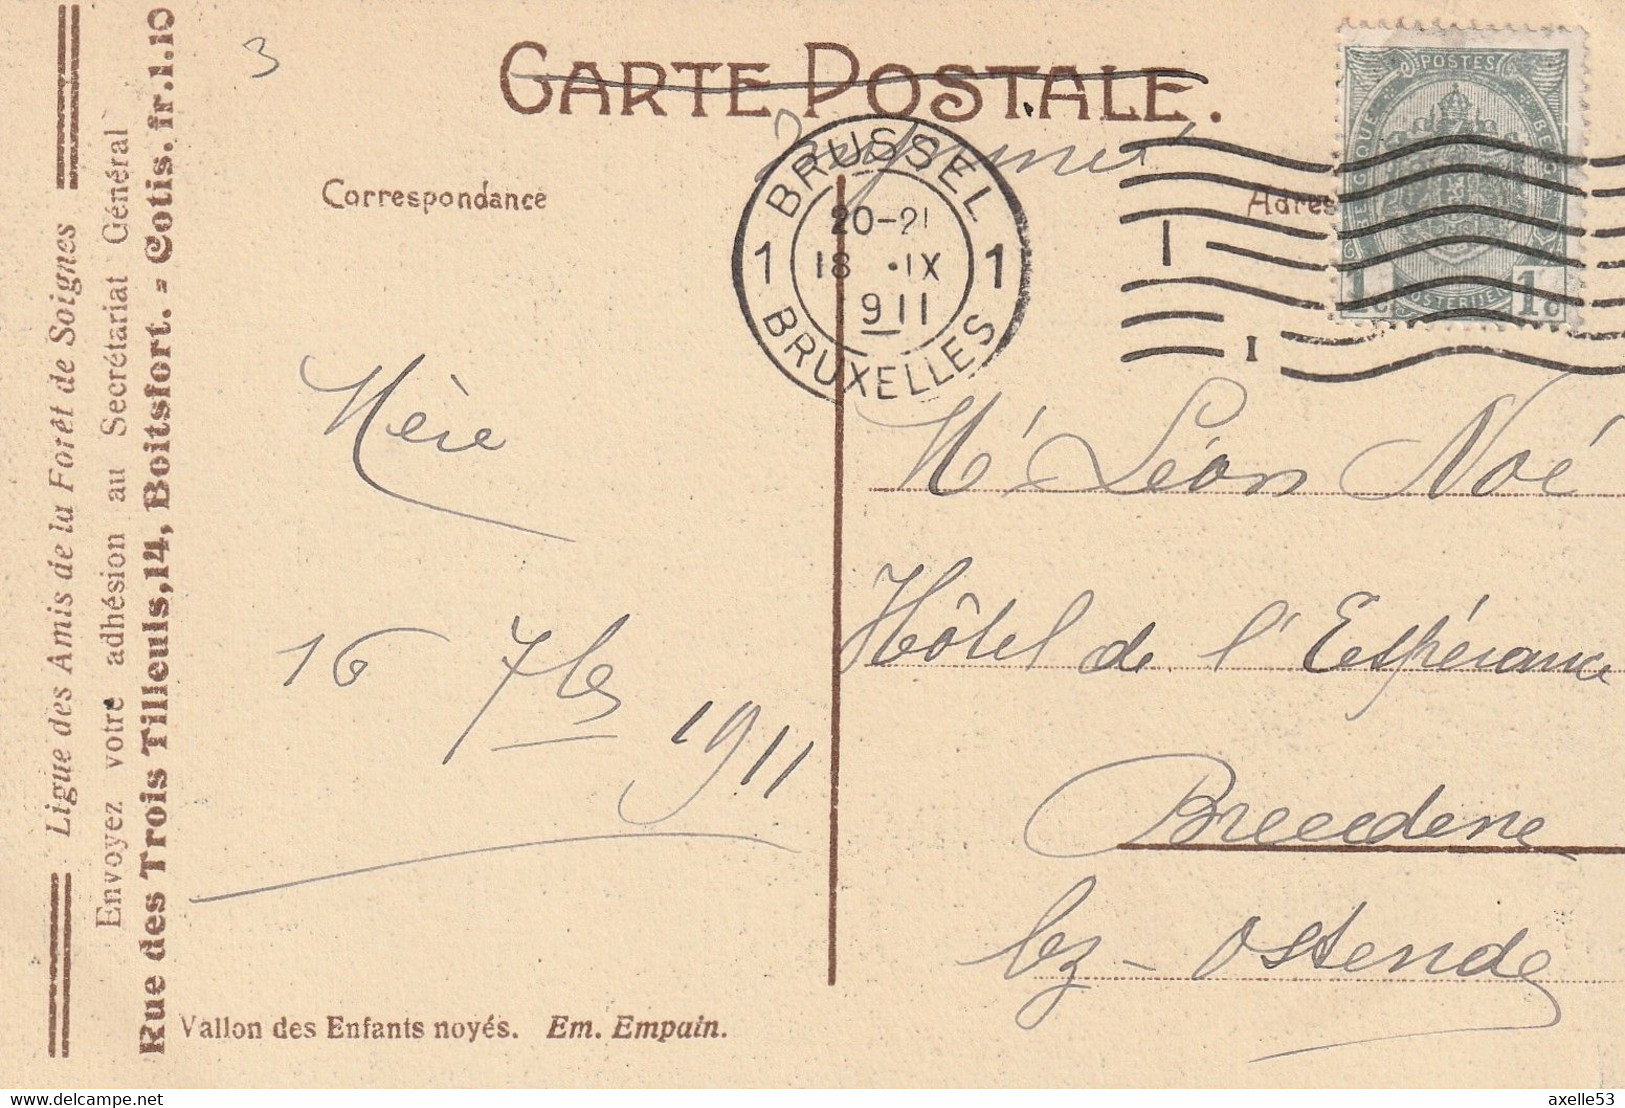 Ligue des Amis de la Forêt de Soignes
Envoyez votre adhésion au Secrétariat Général
Rue des Trois Tilleuls, 14, Boitsfort. = Cotis. fr. 1.10
3
CARTE POSTALE.
Correspondance
Adres
BRUSSEL
20-21
1 18 · IX 1
911
BRUXELLES
1
I
POSTES
BELGIQUE
POSTERIJEN
1c 1c
Mère
16 7bre 1911
Mr Léon Noé
Hôtel de l'Espérance
Breedene
lez-Ostende
Vallon des Enfants noyés. Em. Empain.
axelle53